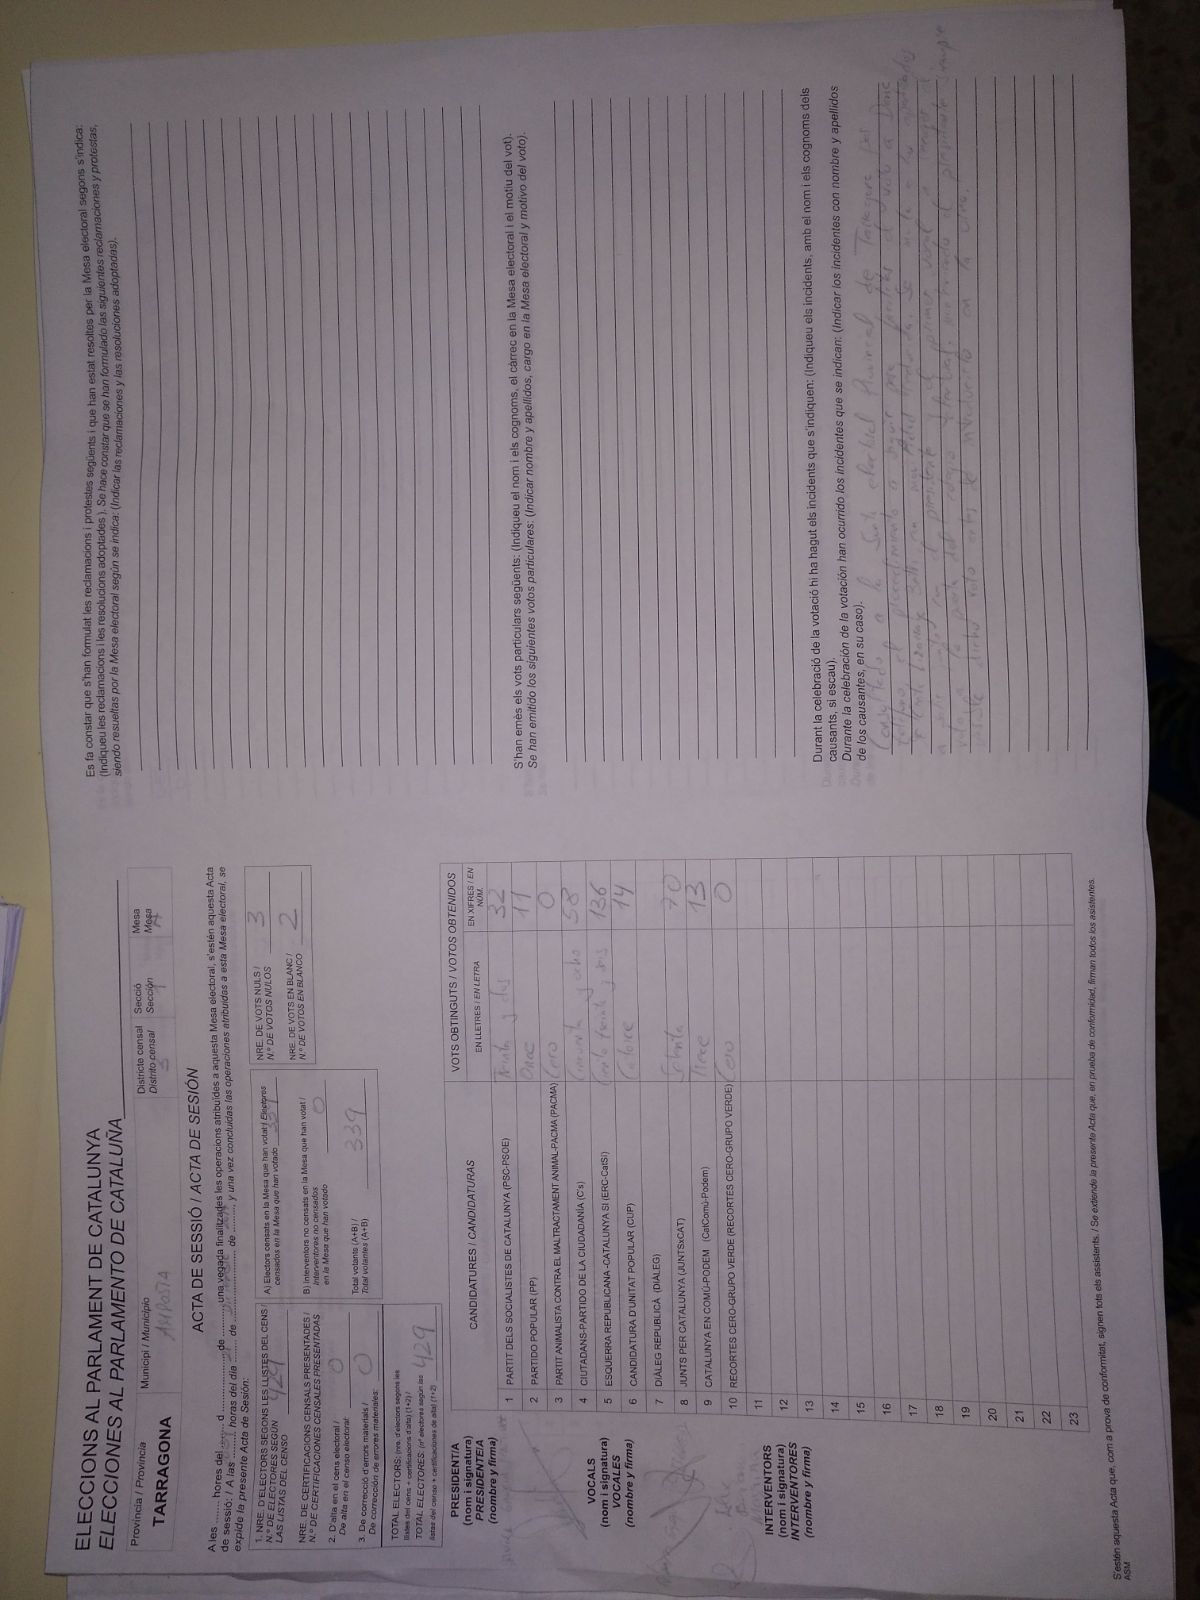 ELECCIONS AL PARLAMENT DE CATALUNYA
ELECCIONES AL PARLAMENTO DE CATALUÑA
Província / Provincia
TARRAGONA
Municipi / Municipio
AMPOSTA
Districte censal
Distrito censal
3
Secció
Sección
1
Mesa
Mesa
A
ACTA DE SESSIÓ / ACTA DE SESIÓN
A les ........ hores del ........ d ........ de ........, una vegada finalitzades les operacions atribuïdes a aquesta Mesa electoral, s'estén aquesta Acta
de sessió: / A las ........ horas del día ........ de ........ de ........, y una vez concluidas las operaciones atribuidas a esta Mesa electoral, se
expide la presente Acta de Sesión:
1. NRE. D'ELECTORS SEGONS LES LLISTES DEL CENS /
N.º DE ELECTORES SEGÚN
LAS LISTAS DEL CENSO
429
NRE. DE CERTIFICACIONS CENSALS PRESENTADES /
N.º DE CERTIFICACIONES CENSALES PRESENTADAS
2. D'alta en el cens electoral /
De alta en el censo electoral:
0
3. De correcció d'errors materials /
De corrección de errores materiales:
0
TOTAL ELECTORS: (nre. d'electors segons les
llistes del cens + certificacions d'alta) (1+2) /
TOTAL ELECTORES: (nº electores según las
listas del censo + certificaciones de alta) (1+2)
429
A) Electors censats en la Mesa que han votat / Electores
censados en la Mesa que han votado
339
B) Interventors no censats en la Mesa que han votat /
Interventores no censados
en la Mesa que han votado
0
Total votants (A+B) /
Total votantes (A+B)
339
NRE. DE VOTS NULS /
N.º DE VOTOS NULOS
3
NRE. DE VOTS EN BLANC /
N.º DE VOTOS EN BLANCO
2
PRESIDENT/A
(nom i signatura)
PRESIDENTE/A
(nombre y firma)
VOCALS
(nom i signatura)
VOCALES
(nombre y firma)
INTERVENTORS
(nom i signatura)
INTERVENTORES
(nombre y firma)
CANDIDATURES / CANDIDATURAS
VOTS OBTINGUTS / VOTOS OBTENIDOS
EN LLETRES / EN LETRA
EN XIFRES / EN
NÚM.
1 PARTIT DELS SOCIALISTES DE CATALUNYA (PSC-PSOE) Treinta y dos 32
2 PARTIDO POPULAR (PP) Once 11
3 PARTIT ANIMALISTA CONTRA EL MALTRACTAMENT ANIMAL-PACMA (PACMA) Cero 0
4 CIUTADANS-PARTIDO DE LA CIUDADANÍA (C's) Cincuenta y ocho 58
5 ESQUERRA REPUBLICANA -CATALUNYA SI (ERC-CatSi) Ciento treinta y seis 136
6 CANDIDATURA D'UNITAT POPULAR (CUP) Catorce 14
7 DIÀLEG REPUBLICÀ (DIÀLEG)
8 JUNTS PER CATALUNYA (JUNTSxCAT) Setenta 70
9 CATALUNYA EN COMÚ-PODEM (CatComú-Podem) Trece 13
10 RECORTES CERO-GRUPO VERDE (RECORTES CERO-GRUPO VERDE) Cero 0
11
12
13
14
15
16
17
18
19
20
21
22
23
S'estén aquesta Acta que, com a prova de conformitat, signen tots els assistents. / Se extiende la presente Acta que, en prueba de conformidad, firman todos los asistentes.
ASM
Es fa constar que s'han formulat les reclamacions i protestes següents i que han estat resoltes per la Mesa electoral segons s'indica:
(Indiqueu les reclamacions i les resolucions adoptades ). Se hace constar que se han formulado las siguientes reclamaciones y protestas,
siendo resueltas por la Mesa electoral según se indica: (Indicar las reclamaciones y las resoluciones adoptadas).
S'han emès els vots particulars següents: (Indiqueu el nom i els cognoms, el càrrec en la Mesa electoral i el motiu del vot).
Se han emitido los siguientes votos particulares: (Indicar nombre y apellidos, cargo en la Mesa electoral y motivo del voto).
Durant la celebració de la votació hi ha hagut els incidents que s'indiquen: (Indiqueu els incidents, amb el nom i els cognoms dels
causants, si escau).
Durante la celebración de la votación han ocurrido los incidentes que se indican: (Indicar los incidentes con nombre y apellidos
de los causantes, en su caso).
Consultado a la Junta electoral Provincial de Tarragona por
teléfono, el procedimiento a seguir
el presidente el primer vocal
dicho voto